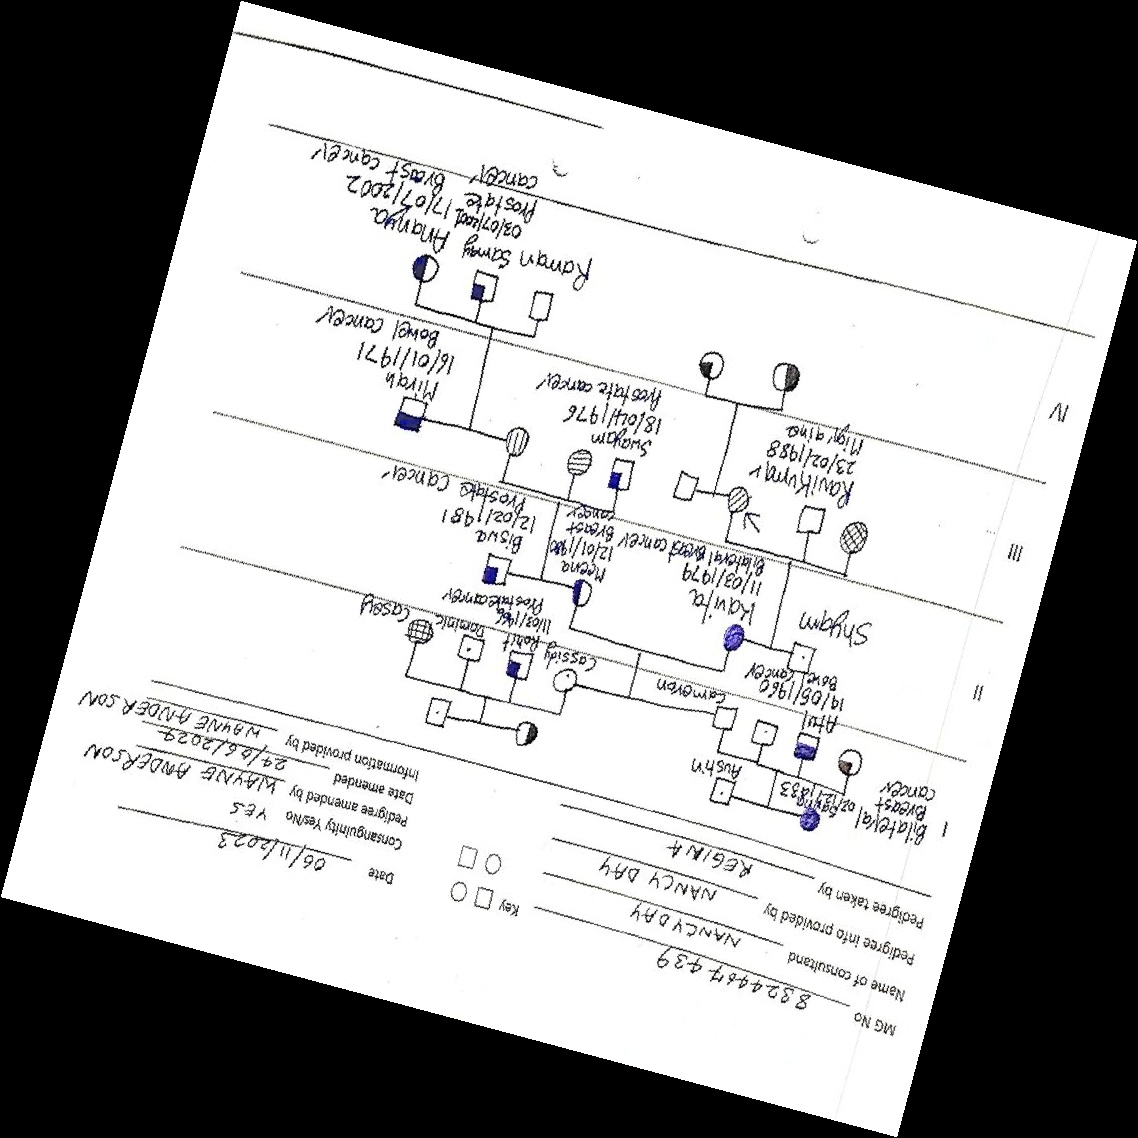 MG No 8324467439
Name of consultand NANCY DAY
Pedigree info provided by NANCY DAY
Pedigree taken by REGINA
Key
Date 06/11/2023
Consanguinity Yes/No YES
Pedigree amended by WAYNE ANDERSON
Date amended 27/06/2027
Information provided by WAYNE ANDERSON
I
Bilateral
Breast
cancer
Austin
Atul
19/05/1960
cancer
Cameron
Cassidy
Rohit
11/03/1966
Prostate cancer
Dominic
Casey
II
Shyam
Kavita
11/03/1979
Bilateral Breast cancer
Meena
12/01/1980
Breast
cancer
Biswa
12/02/1981
Prostate Cancer
III
Ravi Kumar
23/02/1988
Migraine
Swayam
18/04/1976
Prostate cancer
Mirah
16/01/1971
Bowel cancer
IV
Raman
Samy
03/07/2001
Prostate
cancer
Ananya
17/07/2002
Breast cancer